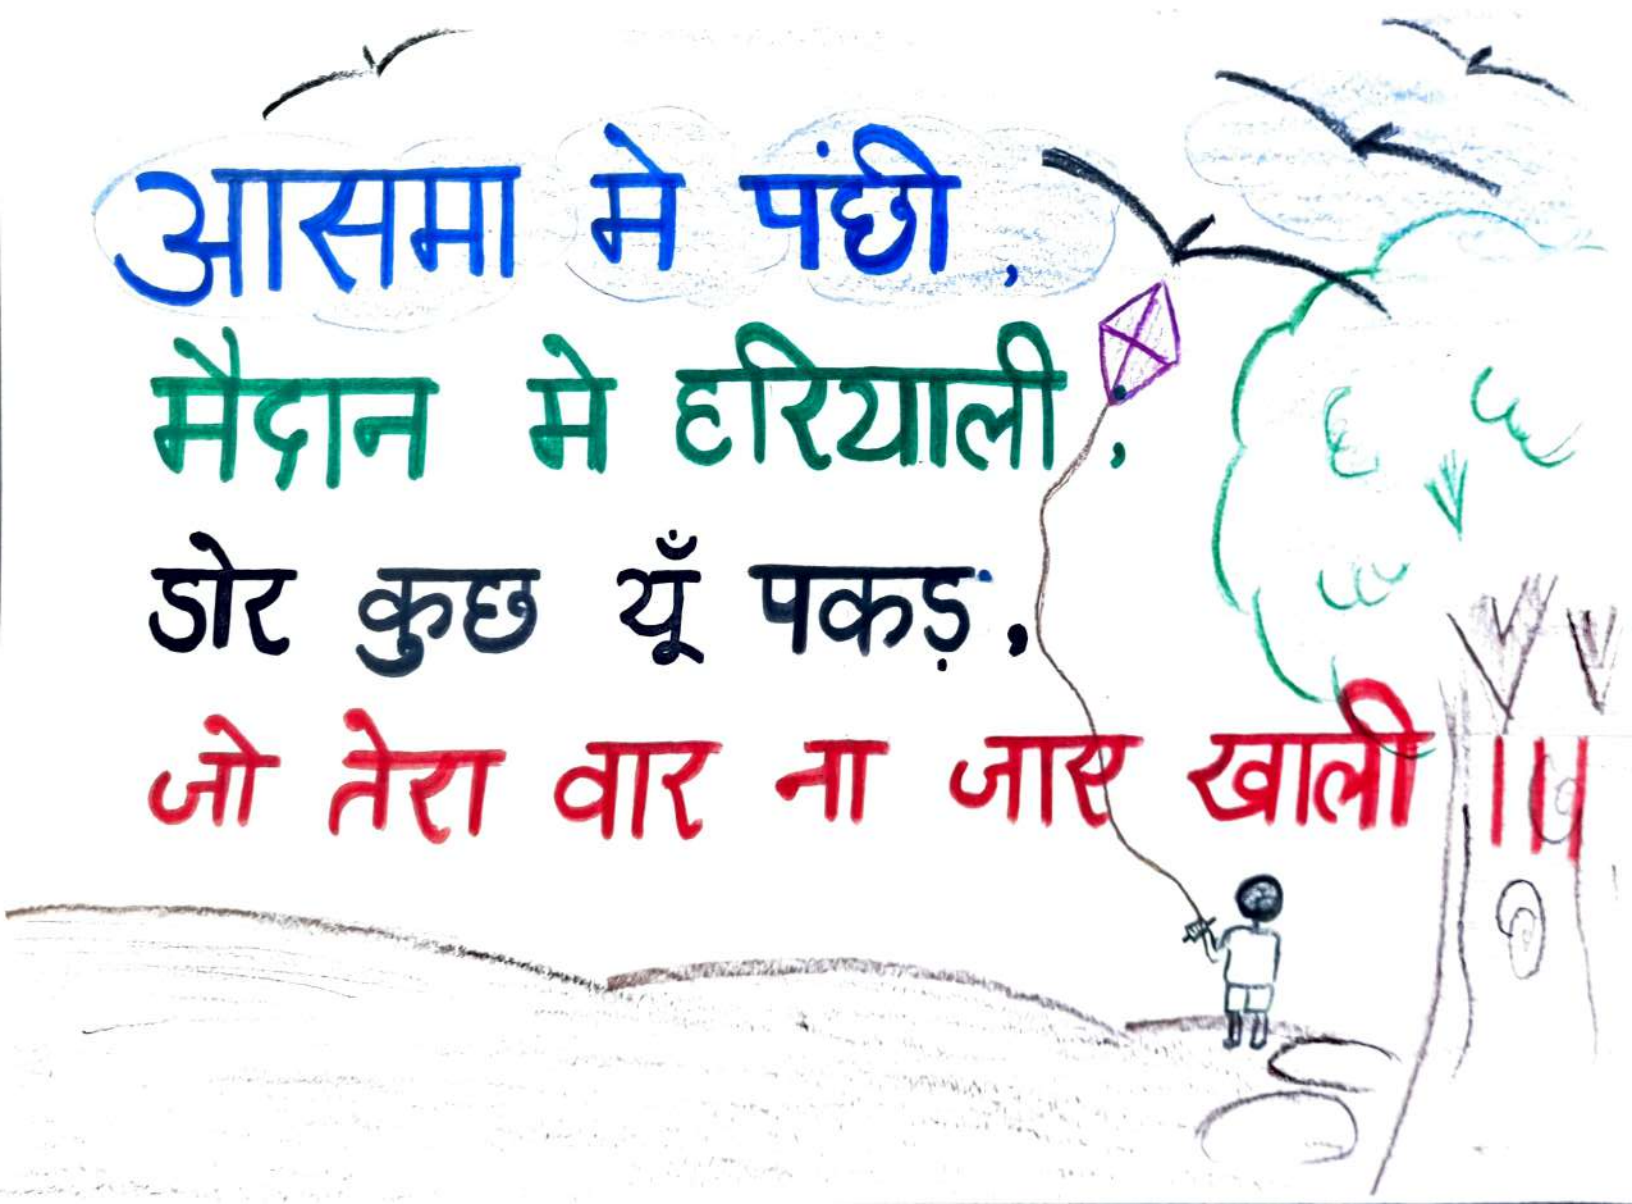 आसमा मे पंछी,
मैदान मे हरियाली,
डोर कुछ यूँ पकड़,
जो तेरा वार ना जाए खाली ।॥